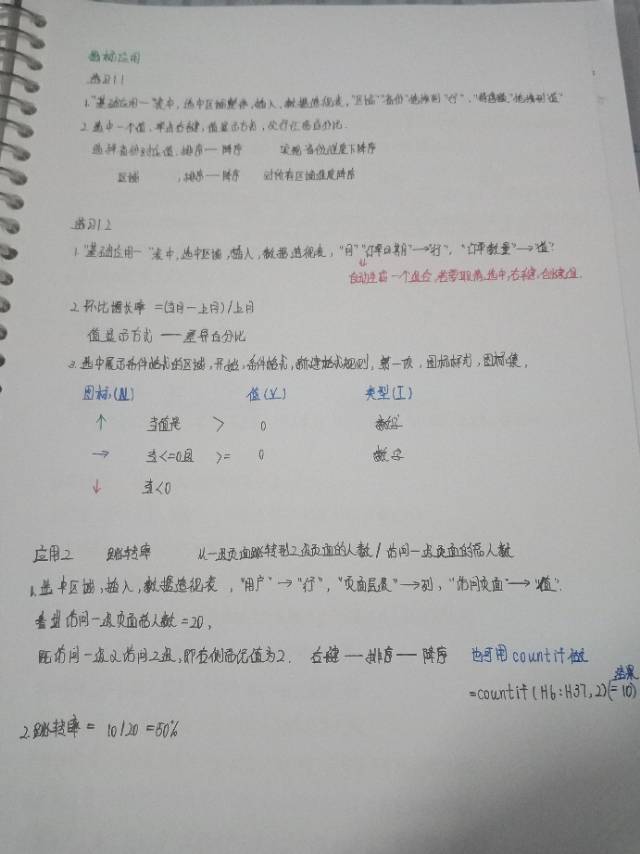 图标应用
练习1.1
1."基础应用一"表中,选中区域整体,插入,数据透视表,"区域""省份"拖拽到"行","销售额"拖拽到值"
2.选中一个值,单点右键,值显示方式,父行汇总百分比.
选择省份对应值,排序—降序 实现省份维度下降序
区域 ,排序—降序 对所有区域维度降序
练习1.2
1."基础应用一"表中,选中区域,插入,数据透视表,"月""订单日期"→"行","订单数量"→"值"?
自动生成一个组合,若要取消,选中,右键,创建组.
2.环比增长率 =(当月—上月)/上月
值显示方式 —— 差异百分比
3.选中展示条件格式的区域,开始,条件格式,新建格式规则,第一项,图标样式,图标集,
图标(N) 值(V) 类型(T)
↑ 当值是 > 0 数字
→ 当<=0且 >= 0 数字
↓ 当<0
应用2 跳转率 从一级页面跳转到2级页面的人数/访问一级页面的总人数
1.选中区域,插入,数据透视表,"用户"→"行","页面层级"→列,"访问页面"→"值".
看到访问一级页面总人数=20,
既访问一级又访问2级,即右侧总计值为2. 右键—排序—降序 也可用countif做
=countif(H6:H37,2)(=10) 结果
2.跳转率 = 10/20 =50%